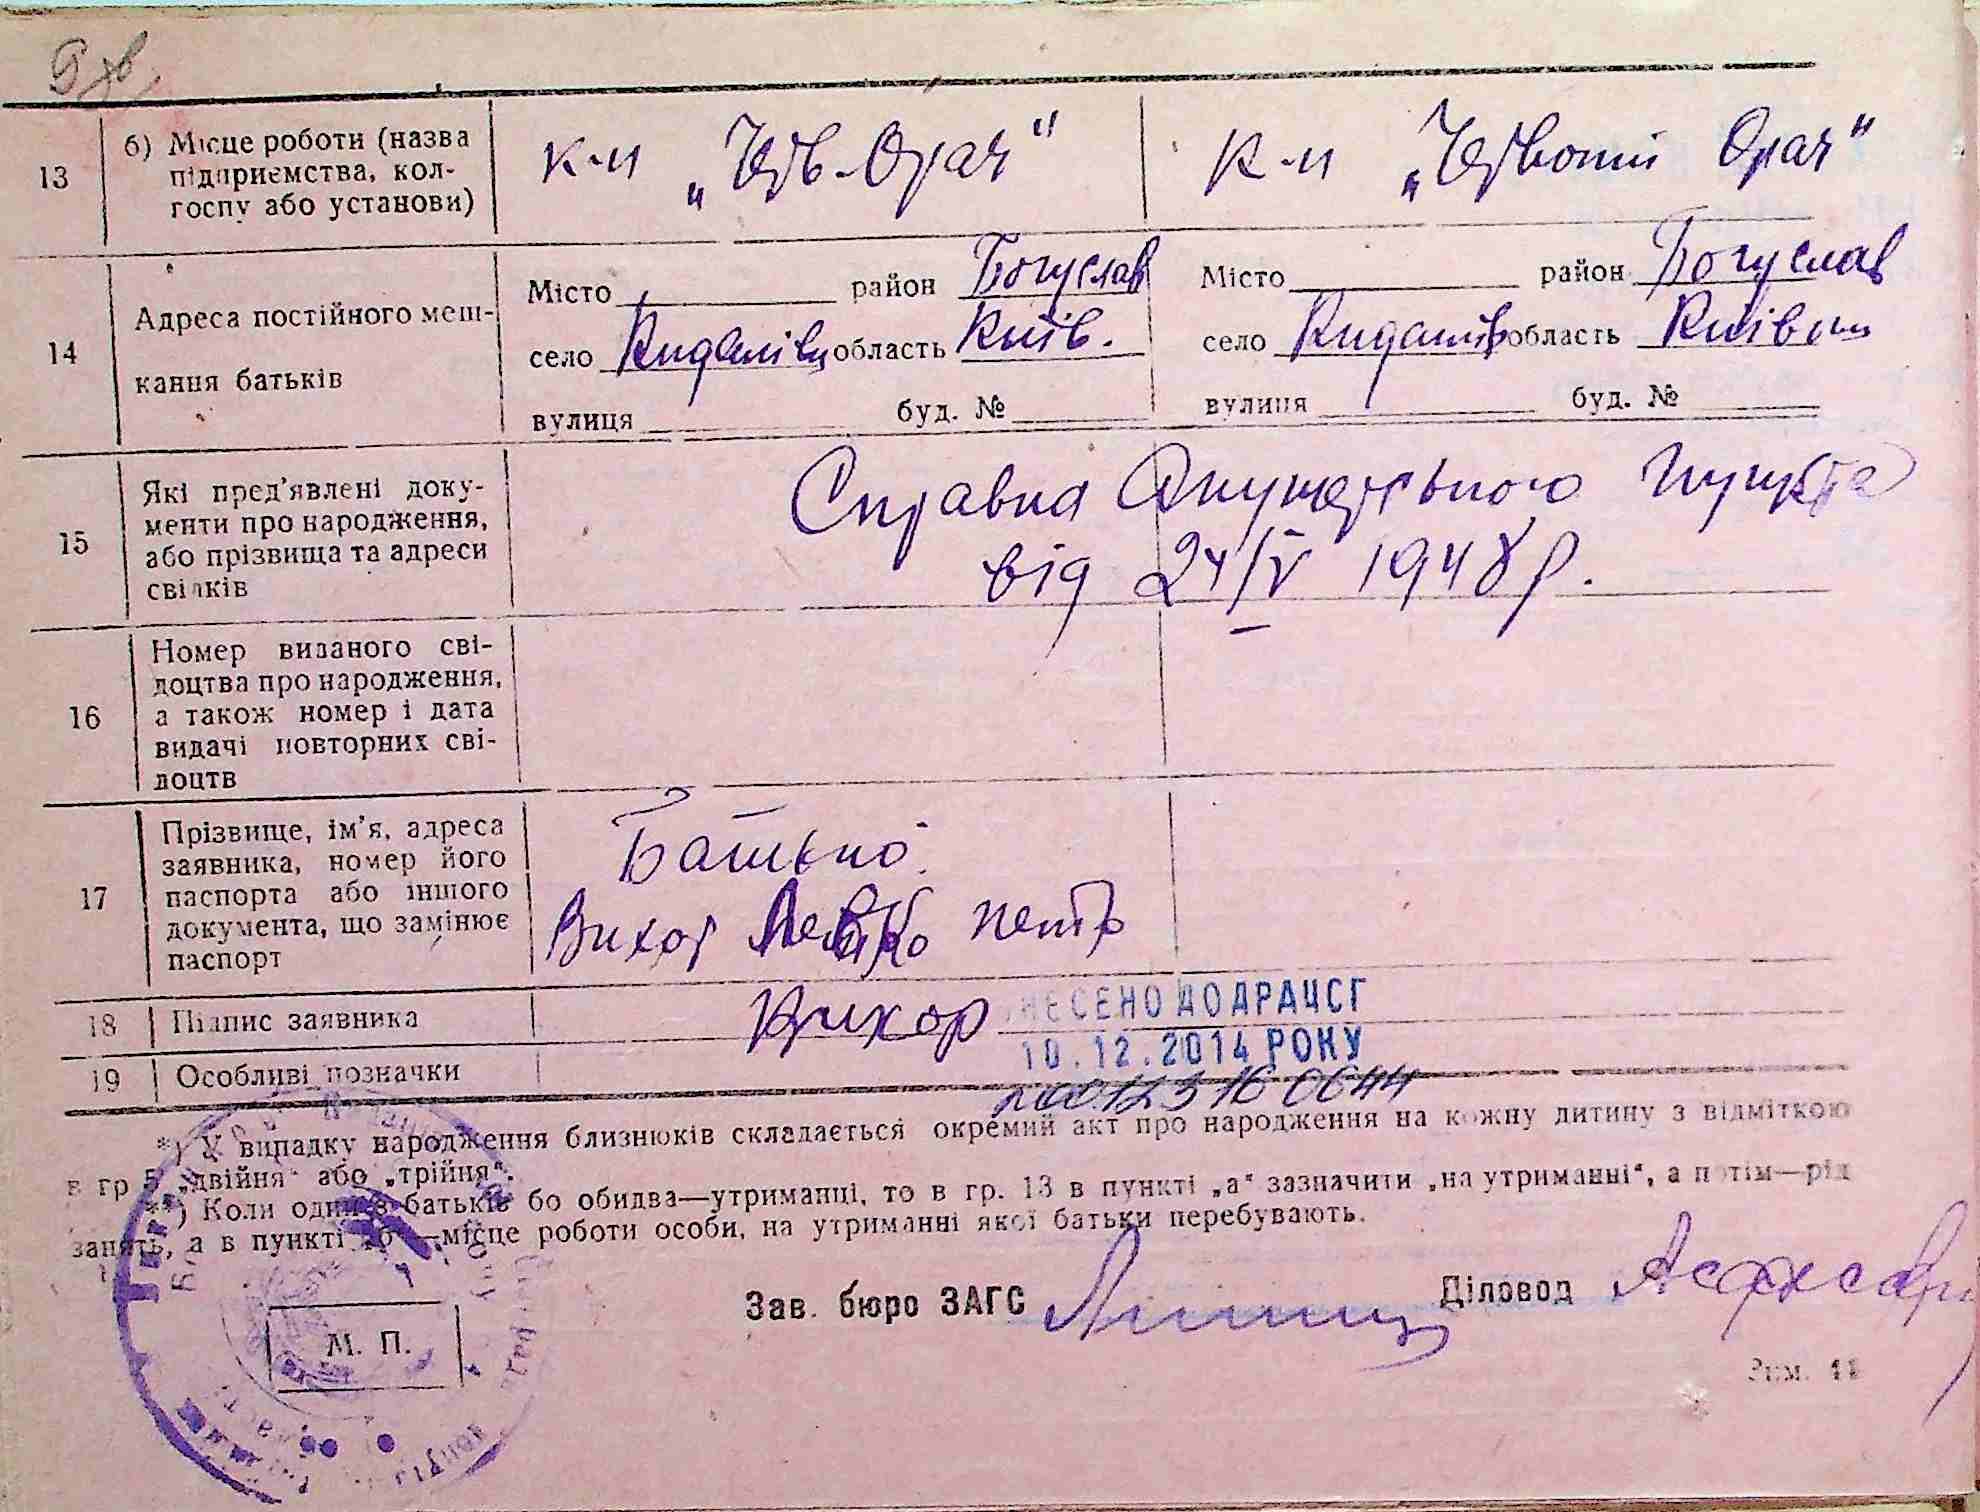 13
б) Місце роботи (назва
підприємства, кол-
госпу або установи)
к-п „Черв-Орач"
к-п „Червоний Орач"
14
Адреса постійного меш-
кання батьків
Місто район Богуслав
село область Київ.
вулиця буд. №
Місто район Богуслав
село область Київськ
вулиця буд. №
15
Які пред'явлені доку-
менти про народження,
або прізвища та адреси
свідків
Справка Акушерського пункта
від 24/V 1948 р.
16
Номер виданого сві-
доцтва про народження,
а також номер і дата
видачі повторних сві-
доцтв
17
Прізвище, ім'я, адреса
заявника, номер його
паспорта або іншого
документа, що замінює
паспорт
Батько
Вихор Левко Петр
18
Підпис заявника
Вихор
НЕСЕНО ДО ДРАЦСГ
10.12.2014 РОКУ
19
Особливі позначки
00123160644
*) У випадку народження близнюків складається окремий акт про народження на кожну дитину з відміткою
в гр 5 „двійня" або „трійня".
**) Коли один з батьків або обидва—утриманці, то в гр. 13 в пункті „а" зазначити „на утриманні", а потім—рід
занять, а в пункті „б"—місце роботи особи, на утриманні якої батьки перебувають.
М. П.
Зав. бюро ЗАГС
Діловод
Зкм. 11